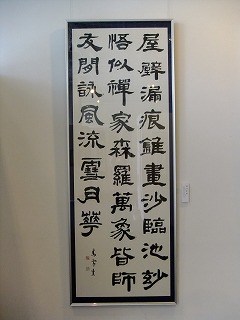 屋壁漏痕錐畫沙臨池妙
悟似禪家森羅萬象皆師
友閒詠風流雪月華